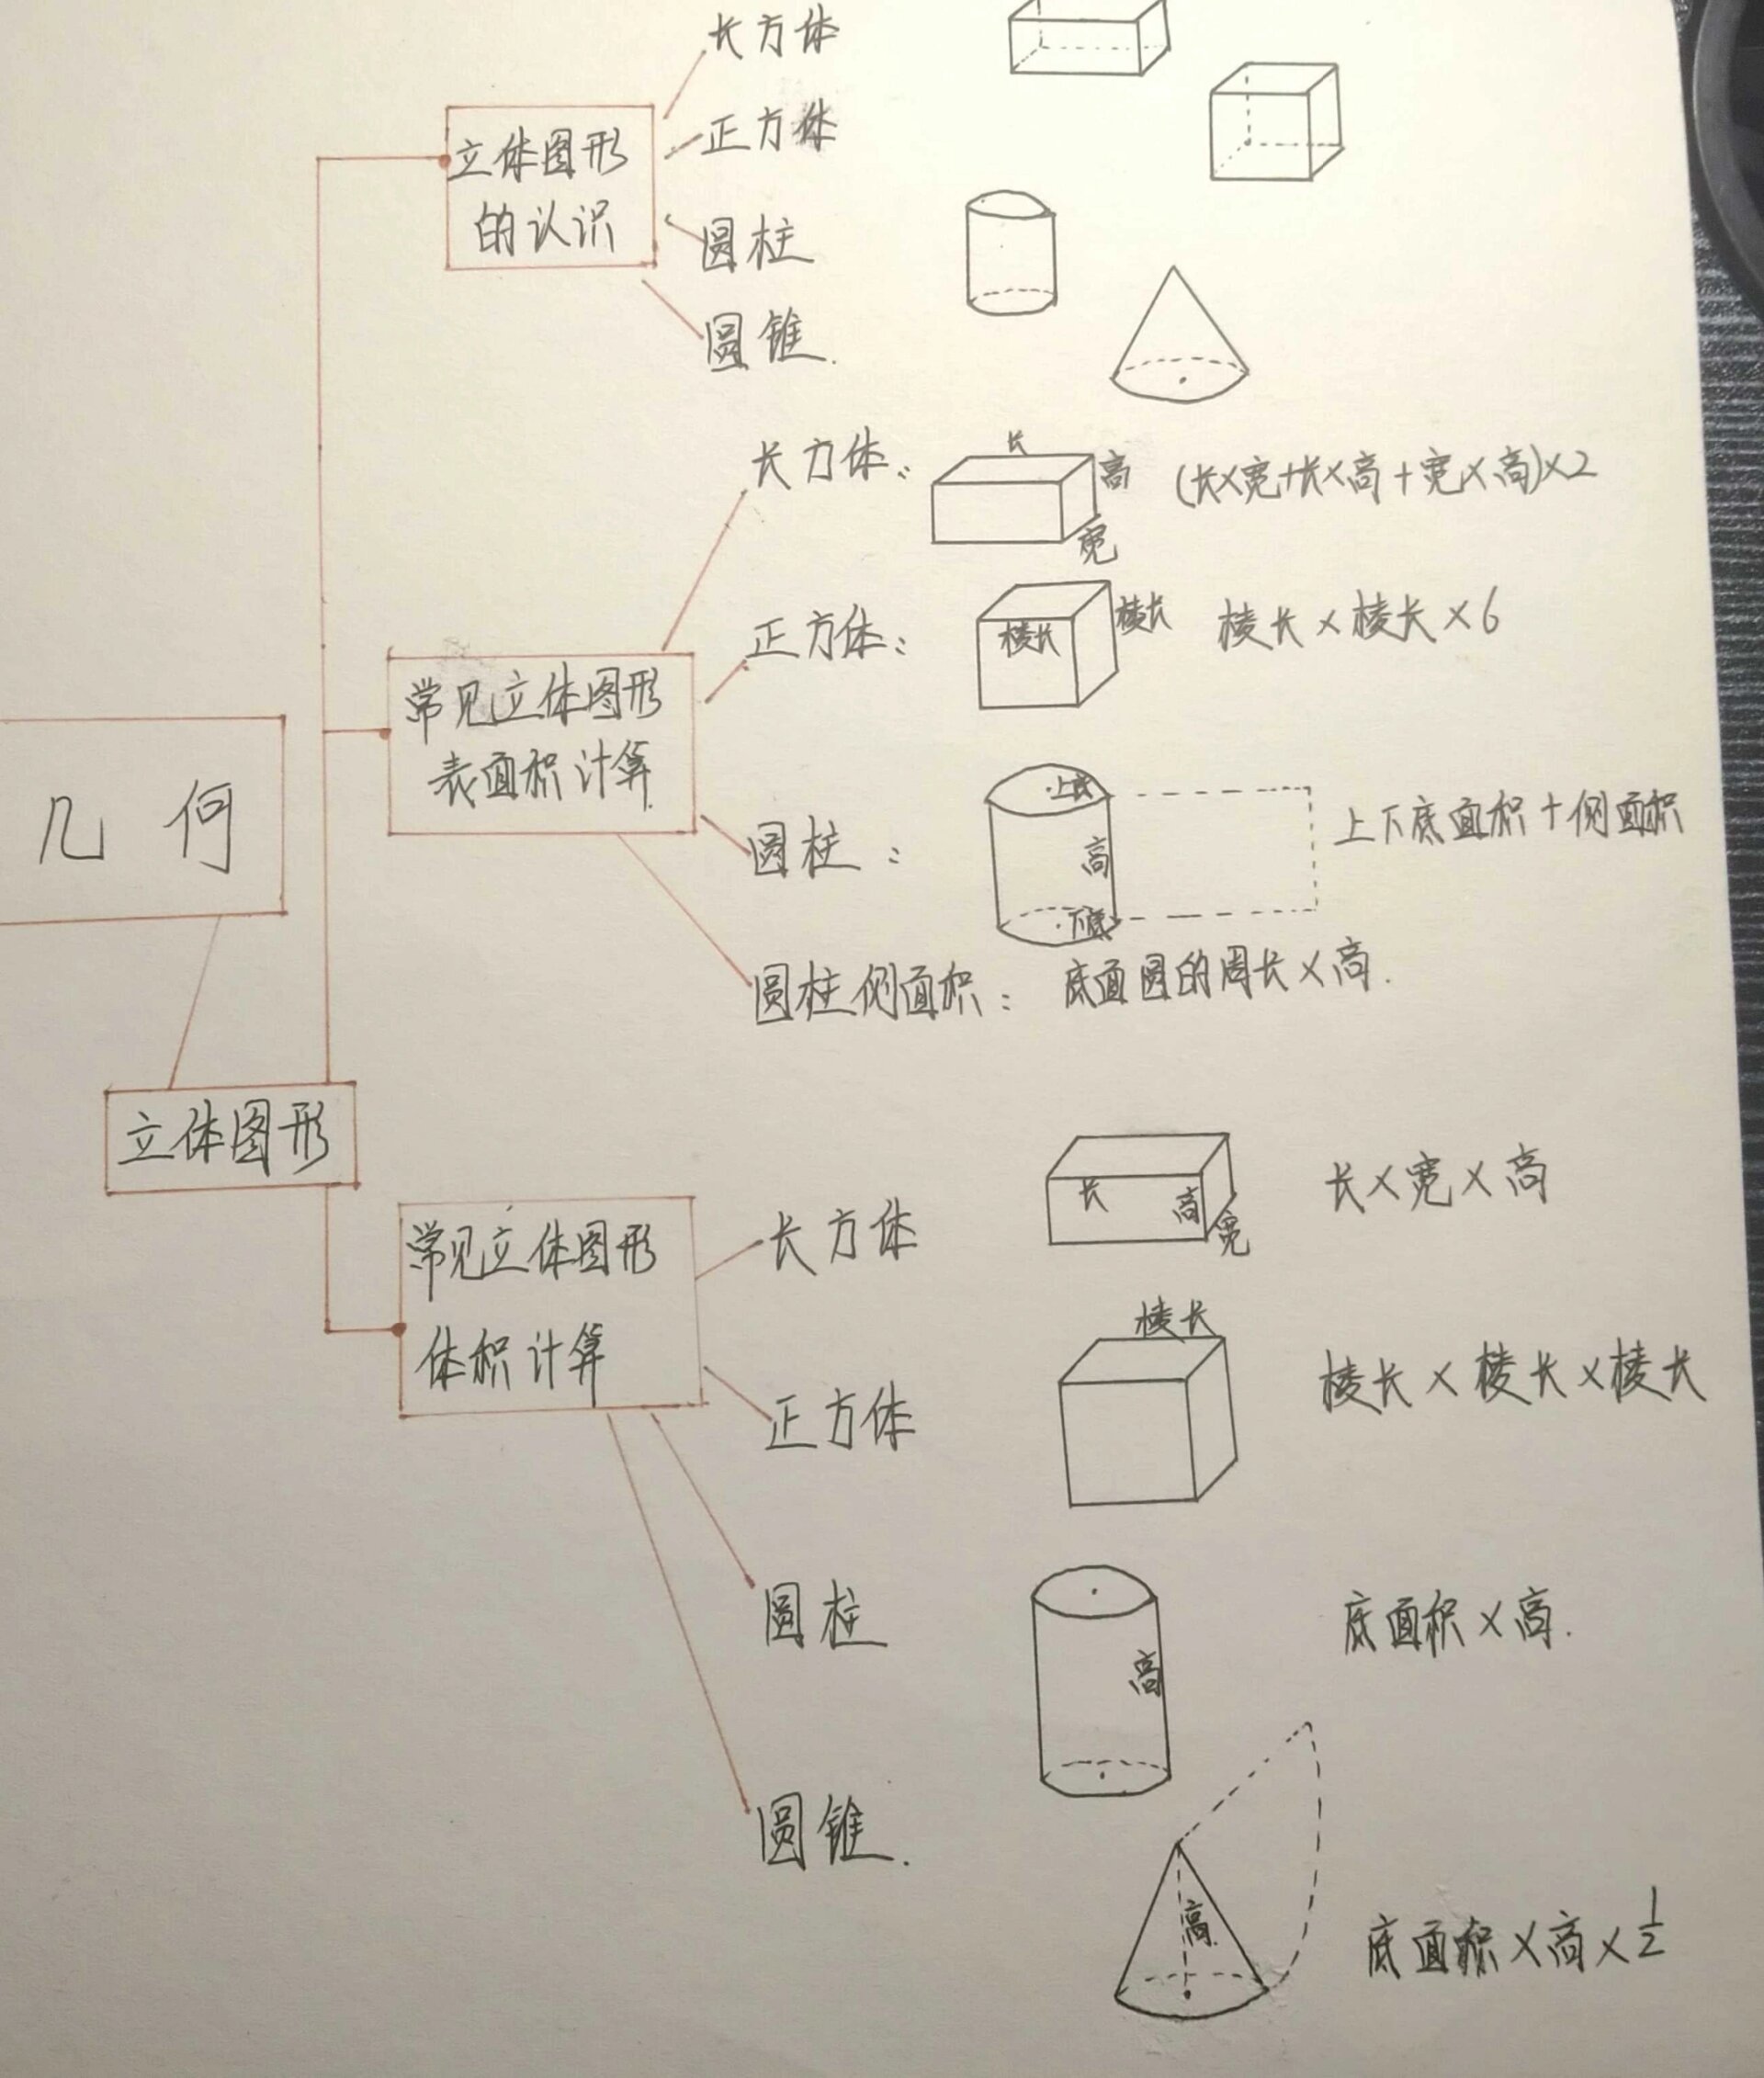 几何
立体图形
立体图形
的认识
长方体
正方体
圆柱
圆锥.
常见立体图形
表面积计算
长方体:
长
高
宽
(长×宽+长×高+宽×高)×2
正方体:
棱长
棱长
棱长×棱长×6
圆柱:
上底
高
下底
上下底面积+侧面积
圆柱侧面积:底面圆的周长×高.
常见立体图形
体积计算
长方体
长
高
宽
长×宽×高
正方体
棱长
棱长×棱长×棱长
圆柱
高
底面积×高.
圆锥.
高
底面积×高×1/2